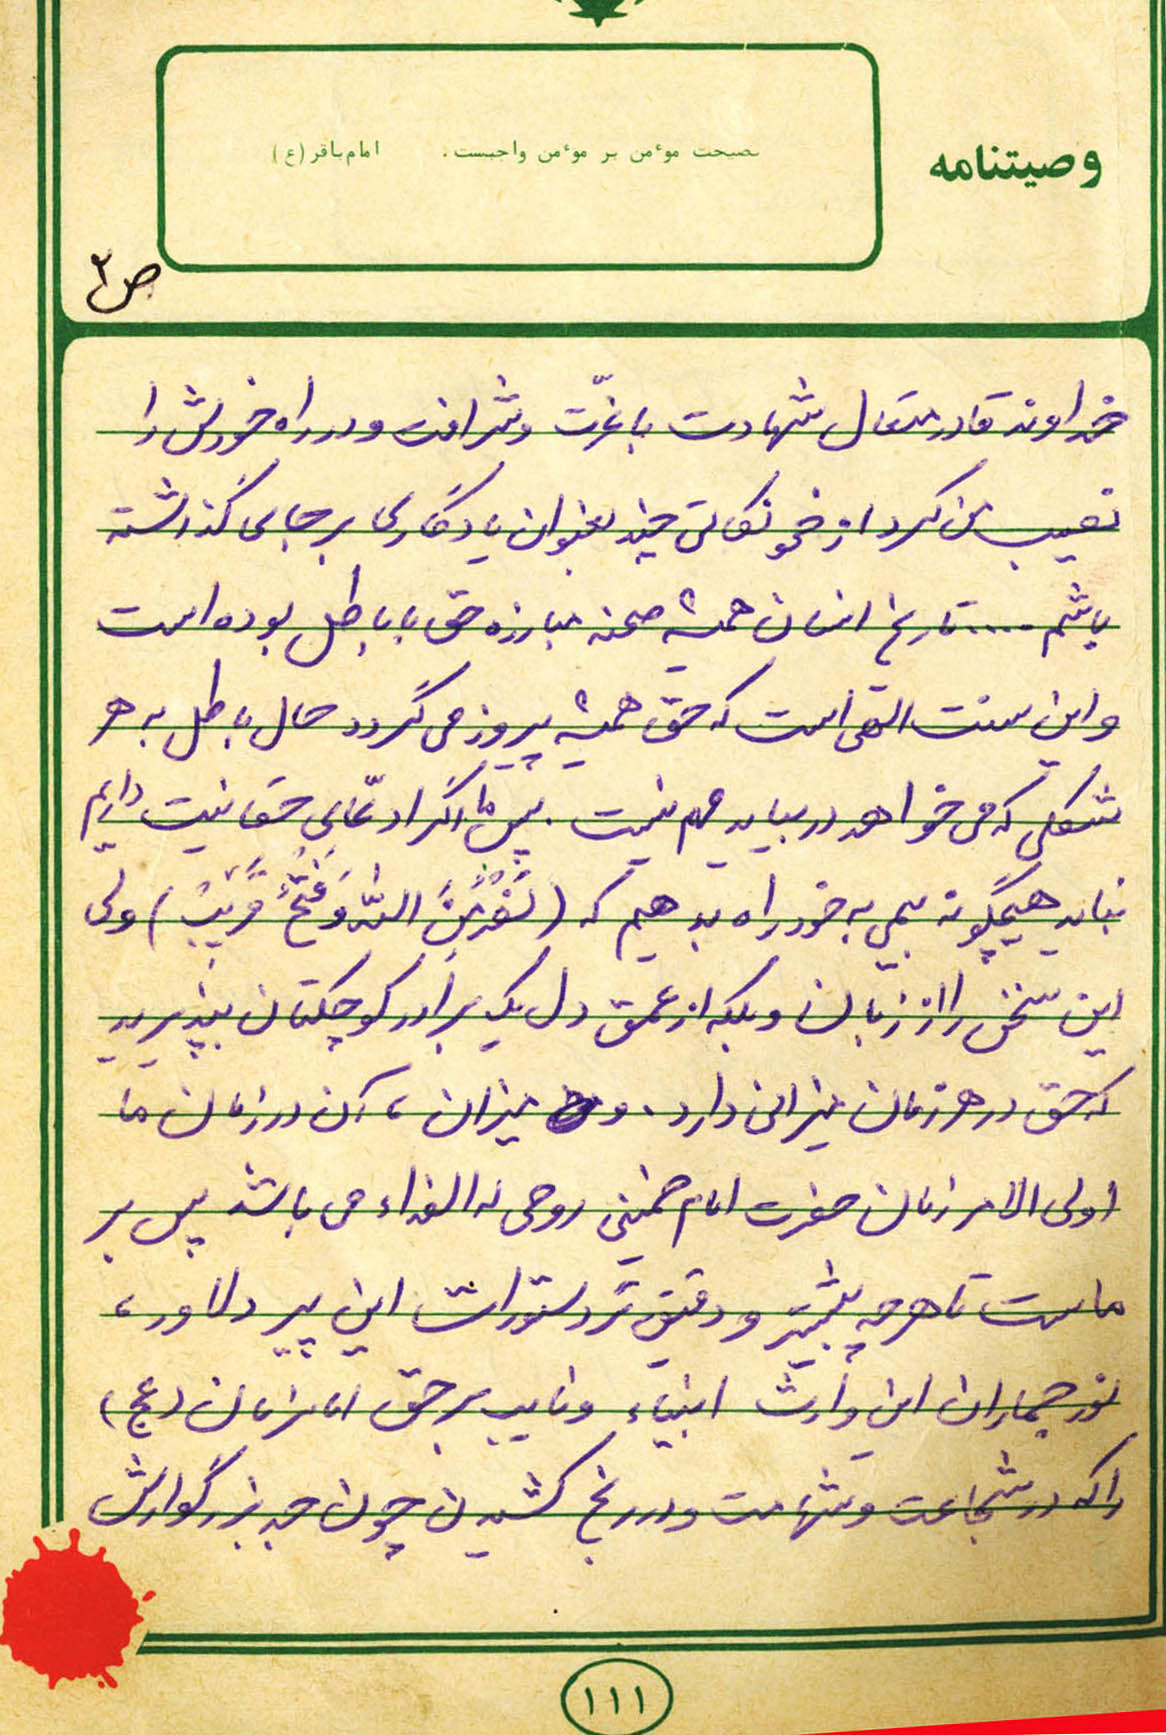 وصیتنامه
نصیحت موٴمن بر موٴمن واجبست. امام باقر (ع)
ص۲
خداوند قادر متعال شهادت با عزّت و شرافت و در راه خودش را
نصیب من کرد از خود نکاتی چند بعنوان یادگاری بر جای گذاشته
باشم .... تاریخ انسان همیشه صحنه مبارزه حق با باطل بوده است
و این سنت الهی است که حق همیشه پیروز می گردد حال باطل به هر
شکلی که می خواهد در بیاید مهم نیست . پس ما اگر ادعّای حقانیت داریم
نباید هیچگونه بیمی به خود راه بدهیم که (نَصْرٌ مِّنَ اللّهِ وَ فَتْحٌ قَریبْ) ولی
این سخن را از زبان و بلکه از عمق دل یک برادر کوچکتان بپذیرید
که حق در هر زمان میزانی دارد . و میزان ، آن در زمان ما
اولی الامر زمان حضرت امام خمینی روحی له الفداء می باشد پس بر
ماست تا هر چه بیشتر و دقیق تر دستورات این پیر دلاور ،
نور جماران این وارث انبیاء و نایب بر حق امام زمان (عج)
را که در شجاعت و شهامت و در رنج کشیدن چون جد بزرگوارش
۱۱۱